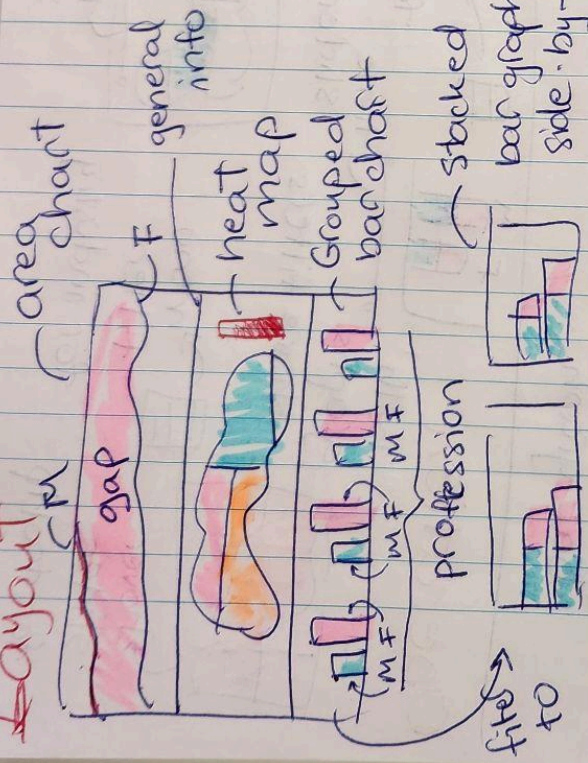 Layout
area
chart
M
F
gap
general
info
heat
map
Grouped
bar chart
M F
M F
M F
proffession
filter
to
stacked
bar graph
side-by-